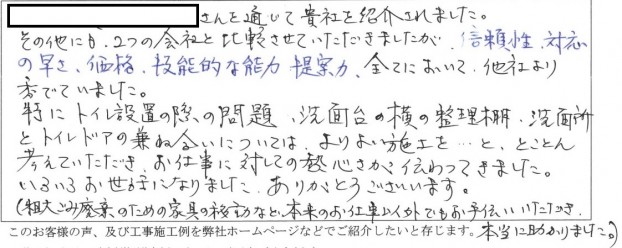 さんを通じて貴社を紹介されました。
その他にも、2つの会社と比較させていただきましたが、信頼性、対応
の早さ、価格、技能的な能力、提案力、全てにおいて、他社より
秀でていました。
特にトイレ設置の際の問題、洗面台の横の整理棚、洗面所
とトイレドアの兼ね合いについては、よりよい施工を…と、とことん
考えていただき、お仕事に対しての熱心さが伝わってきました。
いろいろお世話になりました。ありがとうございます。
(粗大ごみ廃棄のための家具の移動など、本来のお仕事以外でもお手伝いいただき、
このお客様の声、及び工事施工例を弊社ホームページなどでご紹介したいと存じます。本当に助かりました。)